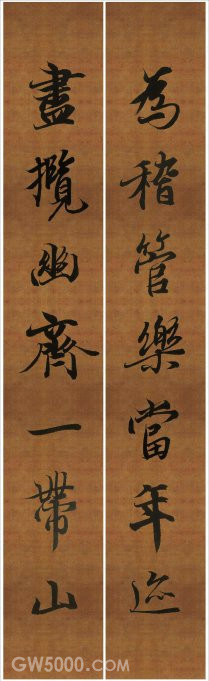 為稽管樂當年迹
盡攬幽齊一帶山
GW5000.com